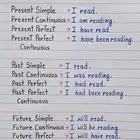 Present Simple → I read.
Present Continuous → I am reading.
Present Perfect → I have read
Present Perfect → I have been reading.
Continuous
Past Simple → I read.
Past Continuous → I was reading.
Past Perfect → I had read.
Past Perfect → I had been reading
Continuous
Future Simple → I will read.
Future Continuous → I will be reading.